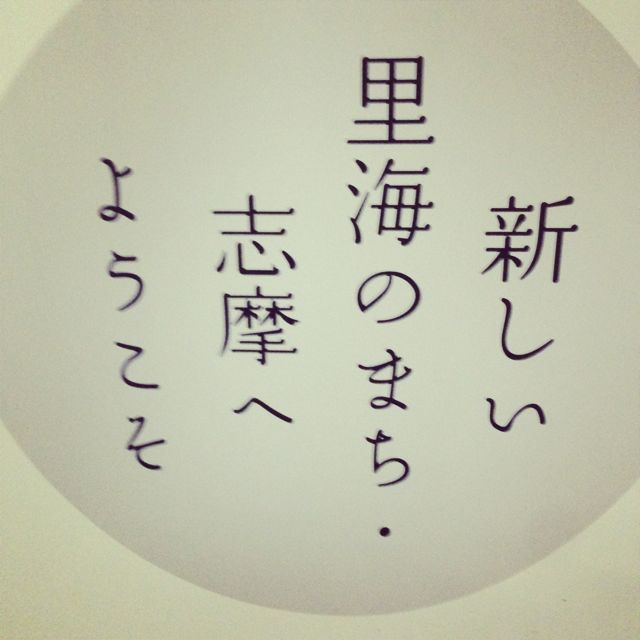 新しい
里海のまち・
志摩へ
ようこそ